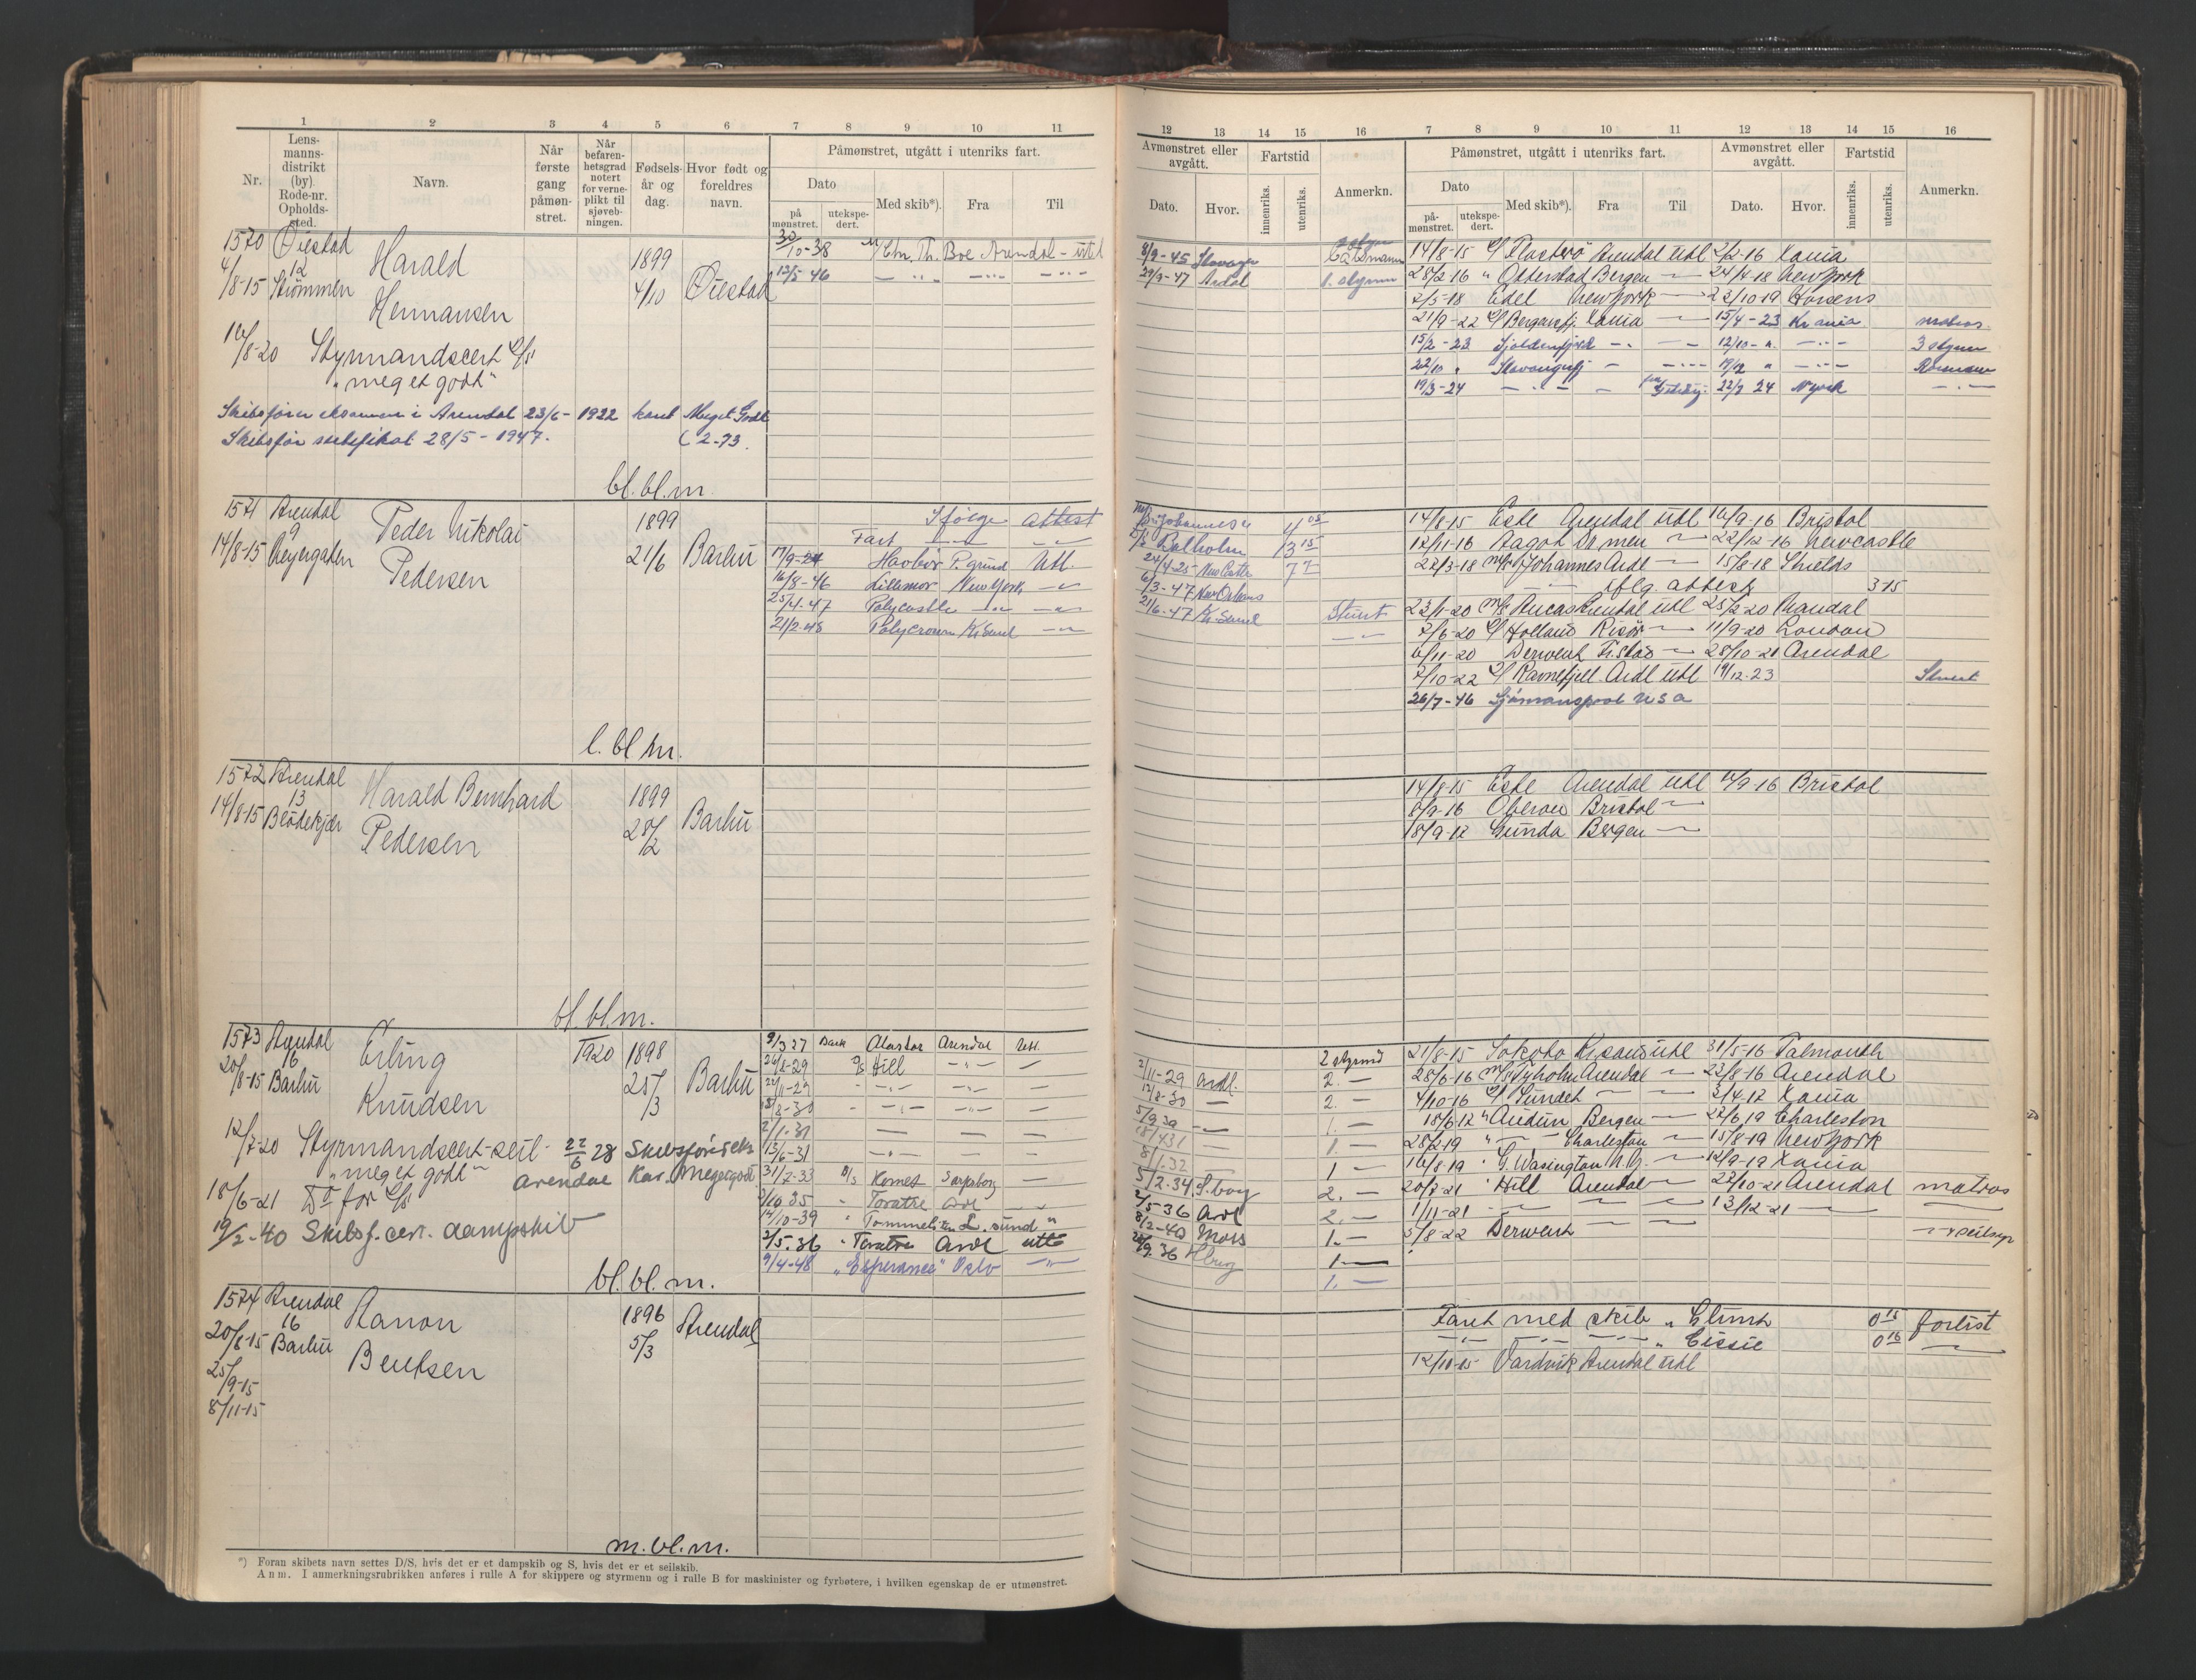 1 2 3 4 5 6 7 8 9 10 11
Nr.
Lens-
manns-
distrikt
(by).
Rode-nr.
Opholds-
sted.
Navn.
Når
første
gang
påmøn-
stret.
Når
befaren-
hetsgrad
notert
for verne-
plikt til
sjøveb-
ningen.
Fødsels-
år og
dag.
Hvor født og
foreldres
navn.
Påmønstret, utgått i utenriks fart.
Dato
på
mønstret.
utekspe-
dert.
Med skib*).
Fra
Til
1570 Øiestad Harald 1899 30/10-38 M/ Chr. Th. Boe Arendal - utl
4/8-15 12 Strømmen Hermansen 4/10 Øiestad 13/5 46
16/8-20 Styrmandscert
"meget godt"
Skibsfører eksamen i Arendal 23/6-1922 kard Meget Godt
Skibsfør sertifikat 28/5-1947. (2-73.
bl.bl.m.
1571 Arendal Peder Nikolai 1899 Ifølge attest
14/8-15 9 Pedersen 21/6 Barbu Fart
17/9-24 Havbør P.grund Utl.
16/8-46 Lillemor New York
25/4-47 Polycastle
21/2-48 Polycrown Kr.Sund
l.bl.m.
1572 Arendal Harald Bernhard 1899
14/8-15 13 Blødekjær Pedersen 28/2 Barbu
bl.bl.m.
1573 Arendal Erling 1920 1898 9/3 27 Bark Alastor Arendal Utl.
20/8-15 16 Barbu Knudsen 25/3 Barbu 26/8-29 D/S Hill
22/11-29
15/2-30
2/1-31
12/7-20 Styrmandscert-seil- 22/6 28 Skibsføreseks 13/6-31
"meget godt" Arendal Kar. Megetgodt 31/7-33 D/S Komet Sarpsborg
18/6-21 Do for D/S 2/10 35 Toratre Ardl
19/2-40 Skibsf. cert. dampskib 14/10-39 Tommeliten L.sund
2/5.36 Toratre Ardl utl
9/4-48 "Esperance" Oslo
bl.bl.m.
1574 Arendal Aanon 1896
20/8-15 16 Barbu Bentsen 5/3 Arendal
25/9-15
8/11-15
m.bl.m.
*) Foran skibets navn settes D/S, hvis det er et dampskib og S, hvis det er et seilskib.
Anm. I anmerkningsrubrikken anføres i rulle A for skippere og styrmenn og i rulle B for maskinister og fyrbøtere, i hvilken egenskap de er utmønstret.
12 13 14 15 16 7 8 9 10 11 12 13 14 15 16
Avmønstret eller
avgått.
Dato.
Hvor.
Fartstid
innenriks.
utenriks.
Anmerkn.
Påmønstret, utgått i utenriks fart.
Dato
på-
mønstret.
utekspe-
dert.
Med skib*).
Fra
Til
Avmønstret eller
avgått.
Dato.
Hvor.
Fartstid
innenriks.
utenriks.
Anmerkn.
8/9-45 Stavanger 14/8-15 Arendal Utl 2/2-16 Xania
29/3-47 Ardal 1. styrm 28/2-16 Otterstad Bergen 24/4-18 New York
7/5-18 Edel New York 22/10-19 Horsens
21/9-22 Bergensfj. Xania 15/4-23 Kr ania matros
15/2-23 12/10 3 styrm
22/10 Stavangerfj 19/12
19/3-24 22/7 24 N york
14/8-15 Este Arendal Utl 16/9-16 Bristol
Balholm 12/11-16 Aagot Grimen 22/12-16 Newcastle
24/4-25 New Castle 22/3-18 Johannes Ardl 15/8-18 Shields
6/3-47 New Orleans iflg. attest 3-15
21/6-47 Kr.Sund Stuert 23/1-20 Arendal utl 25/2-20 Mandal
7/6-20 Holland Risør 11/9-20 London
6/11-20 Derwent Fr.stad 28/10-21 Arendal
7/10-22 Ravnefjell Ardl utl 19/12-23 Stuert
26/7-46 Sjømanspool USA
14/8-15 Este Arendal Utl 16/9 16 Bristol
8/9-16 Oberon Bristol
18/9-17 Gunda Bergen
2 styrmd 21/8-15 Sokoto Kr.sand utl 31/5-16 Falmouth
2/11-29 Ardl. 2. 28/6-16 Tyholm Arendal 23/8-16 Arendal
12/8-30 2. 4/10-16 Sundet 3/4-17 Xania
5/9 39 1. 18/6-17 Audun Bergen 22/6 19 Charleston
18/4 31 1. 28/2-19 Charleston 15/8-19 New York
8/1 32 1 16/8-19 G. Wasington N.Y. 12/9-19 Xania
5/2-34 S.borg 2. 20/7-21 Hill Arendal 22/10-21 Arendal matros
2/5-36 Ardl 2. 1/11-21 13/12-21
8/2-40 Moss 1. 5/8-22 Derwent
1
1.
Faret med skib "Glimt 0 15 forlist
" Cissie 0 16
12/10-15 Vardvik Arendal Utl